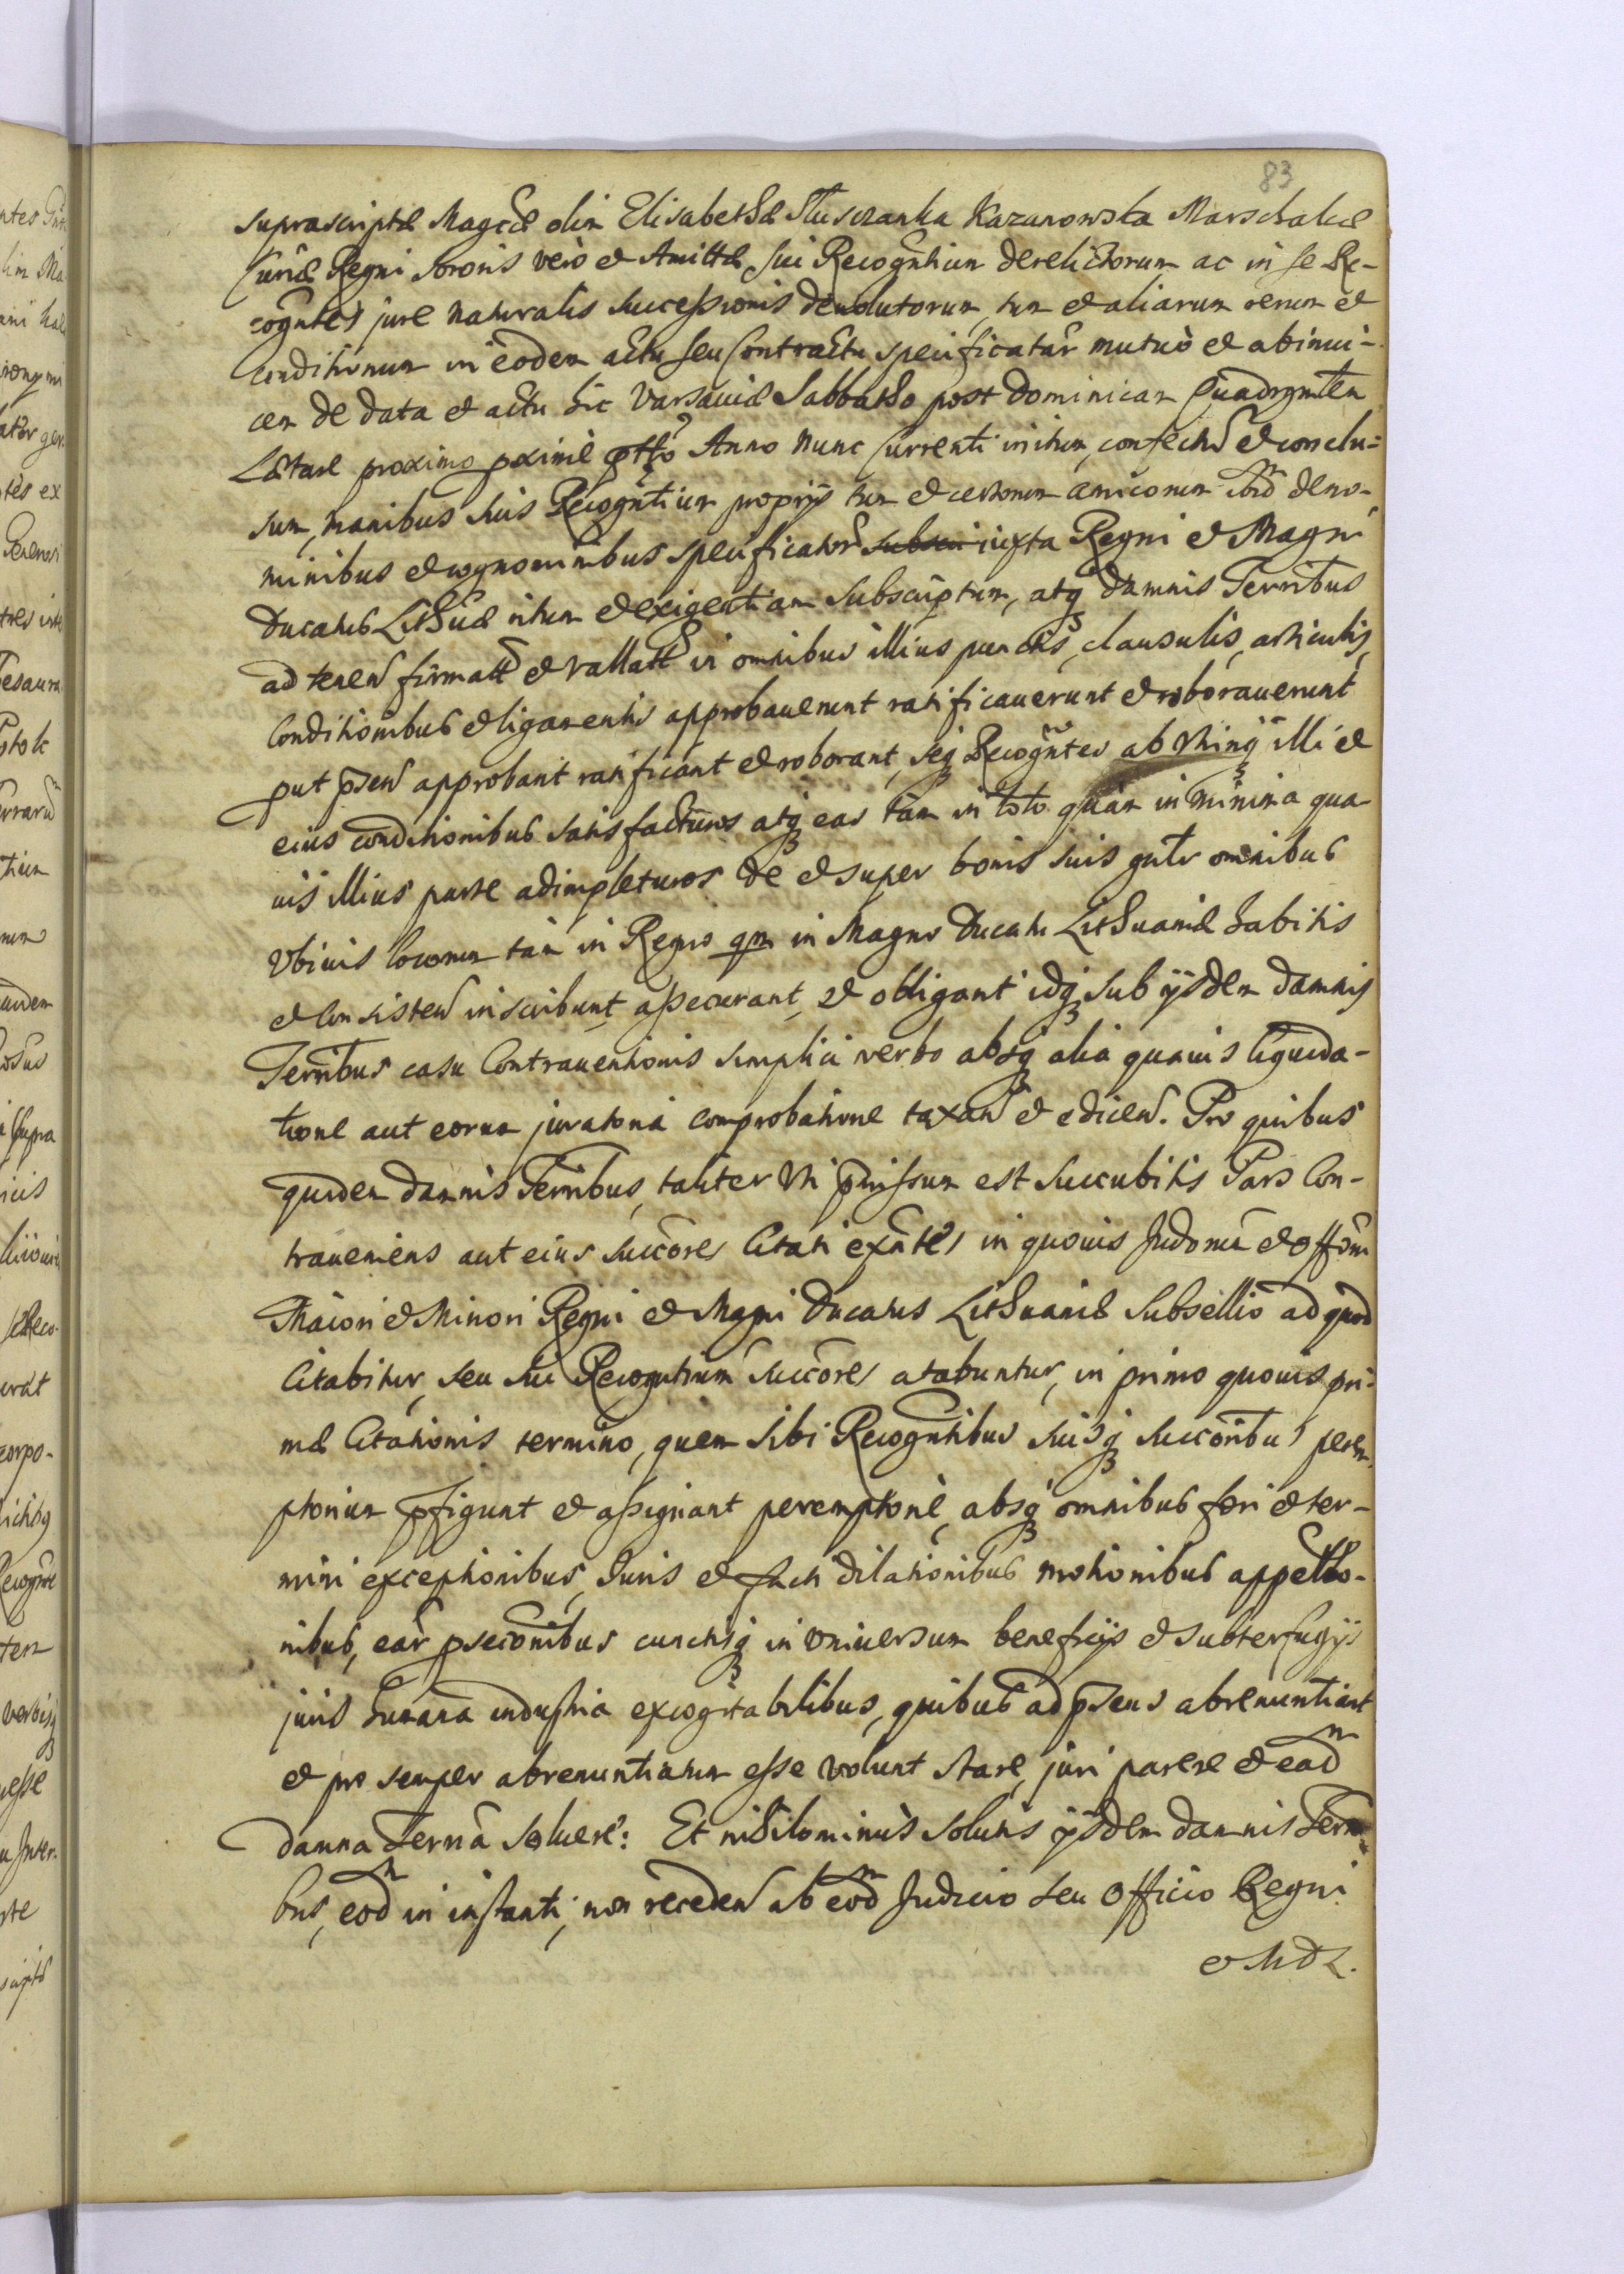 83
suprascriptæ Magcæ olim Elisabethæ Słuszczanka Kazanowska Marschalcæ
Curiæ Regni Sororis vero et Amittæ sui Recogntium derelictorum ac in se Re-
cogntes jure naturalis successionis devolutorum, tum et aliarum rerum et
conditionum in eodem actu seu Contractu specificatar mutuò et abinui-
cem de data et actu hic Varsaviæ Sabbatho post Dominicam Quadrgmlem
Lætare proximo pxime ptto Anno nunc Currenti initum, confectũ et conclu-
sum, manibus suis Recogntium proprijs tum et certorum amicorum ibid deno-
minibus et cognominibus specificator subscri iuxta Regni et Magni
Ducatus Lithuæ ritum et exigentiam subscriptum, atq damnis Terribus
ad tenen firmatt et vallatt in omnibus illius punctis, clausulis, articulis,
Conditionibus et ligamentis approbaverunt ratificaverunt et roboraverunt
put psen approbant ratificant et roborant, seq Recogntes ab vtrinq illi et
eius conditionibus satisfacturos atq eas tam in toto quàm in minima qua-
uis illius parte adimpleturos de et super bonis suis gnlr omnibus
vbiuis locorum tàm in Regno qm in Magno Ducatu Lithuaniæ habitis
et consisten inscribunt, assecurant, et obligant idq sub ijsdem damnis
Terribus casu Contrauentionis simplici verbo absq alia quauis liquida-
tione aut eorum juratoria comprobatione taxan et edicen. Pro quibus
quidem damnis Terribus, taliter vti pmissum est succubitis Pars Con-
traueniens aut eius succores Citati exntes in quouis Judorum et offorum
Maiori et Minori Regni et Magni Ducatus Lithuaniæ Subsellio ad quod
Citabitur, seu sui Recogntium succores citabuntur, in primo quouis pri-
mæ Citationis termino, quem sibi Recogntibus suisq succoribus perem
ptorium pfigunt et assignant peremptoriè, absq omnibus fori et ter-
mini exceptionibus, Juris et facti dilationibus motionibus appello-
nibus, ear psecōnibus cunctisq in vniuersum beneficijs et subterfugijs
juris humana industria excogitabilibus, quibus ad psens abrenuntiant
et pro semper abrenuntiatum esse volunt stare, juri parere et ead
damna Terra soluere: Et nihilominùs solutis ijsdem damnis Terri-
bus, eod in instanti, non receden ab eod Judicio seu Officio Regni
et MDL.